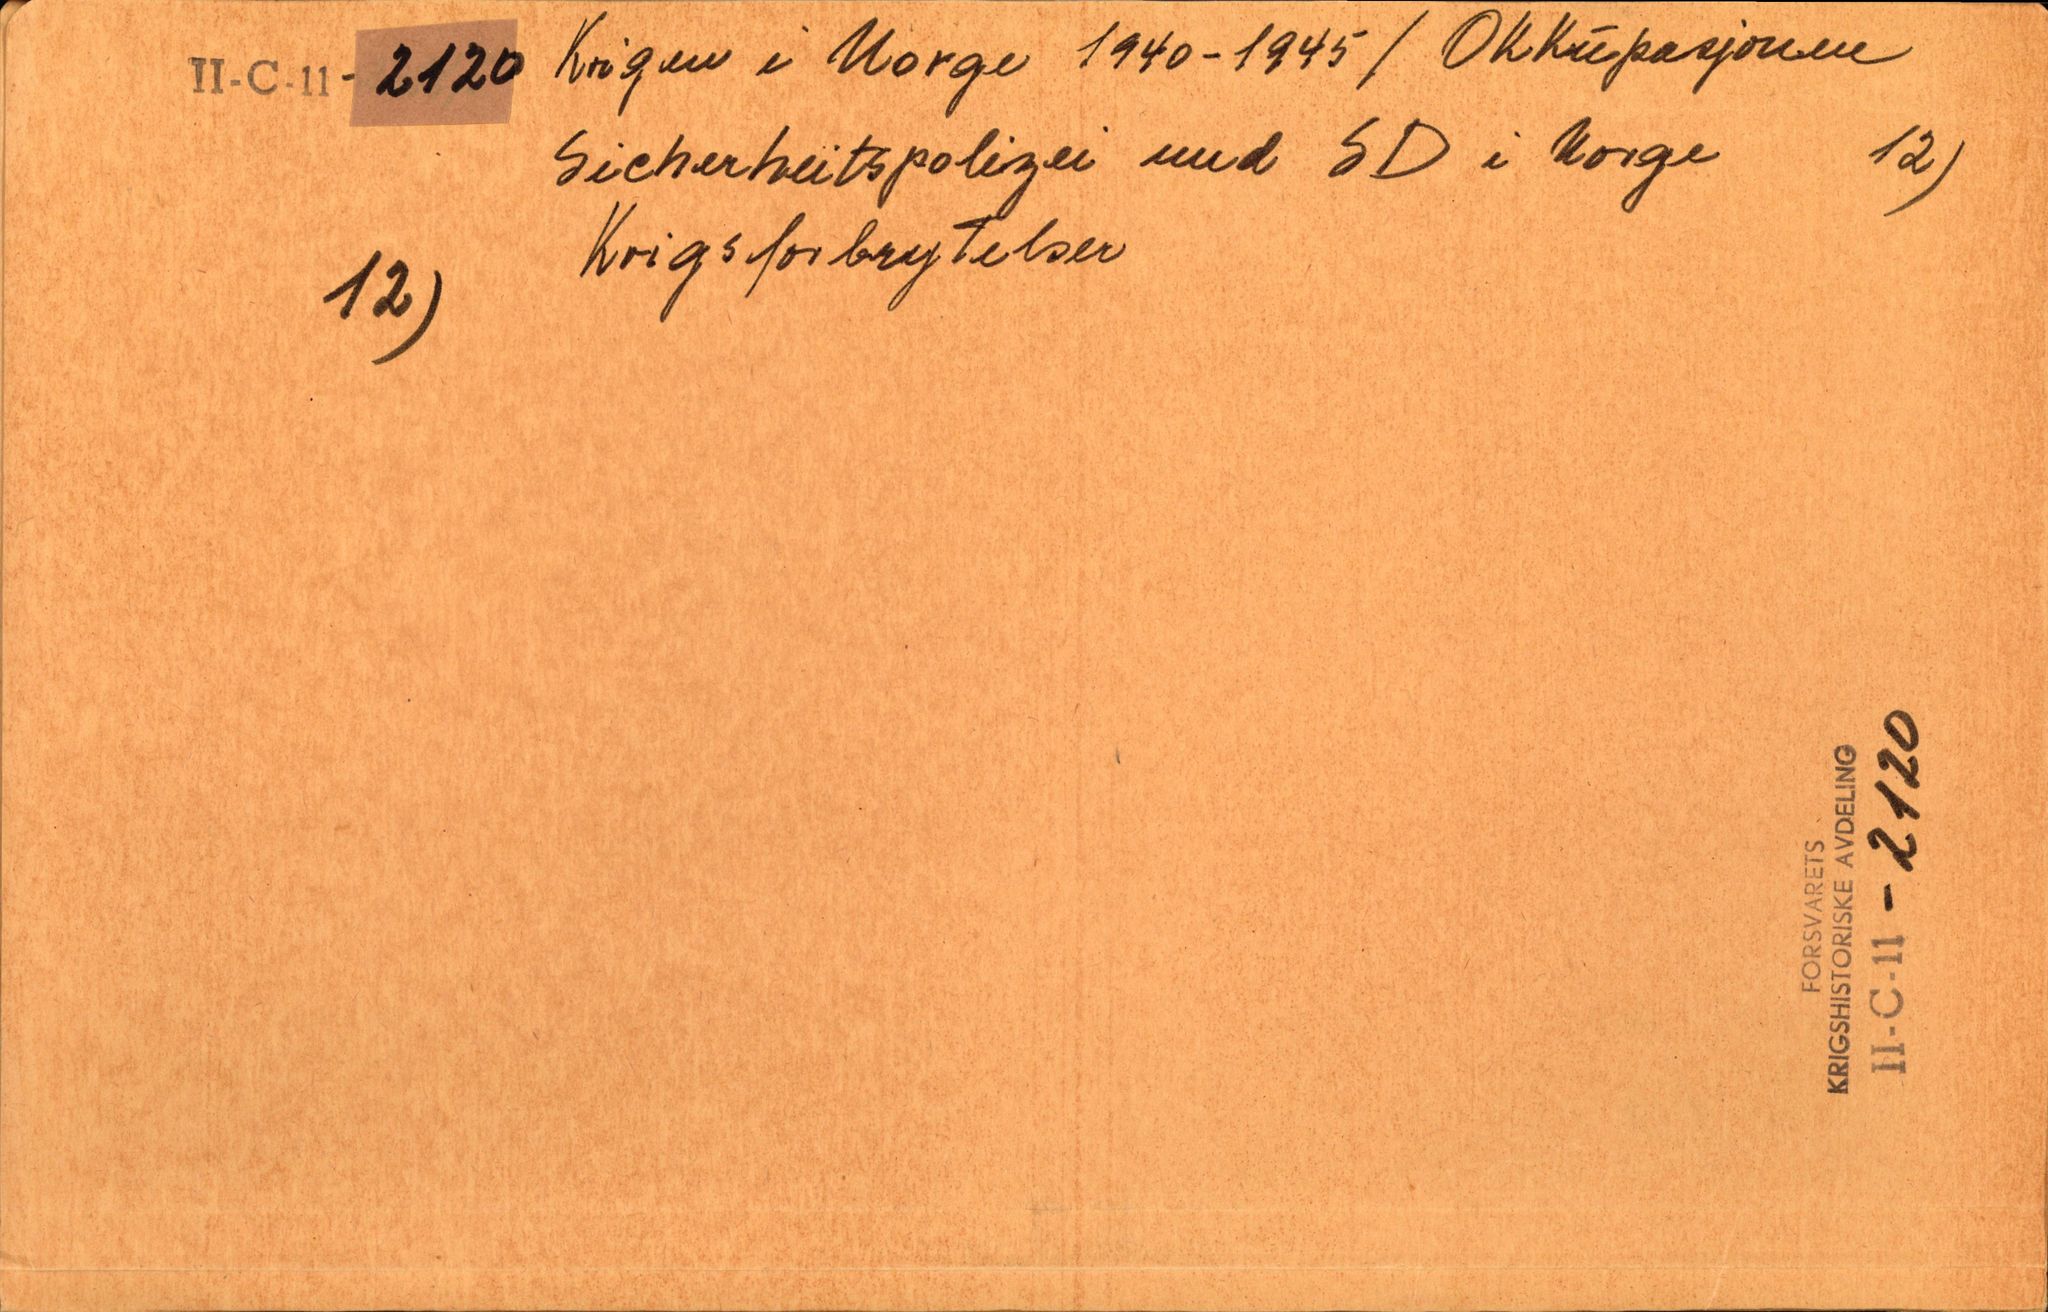 II-C-11-2120 Krigen i Norge 1940-1945 / Okkupasjonen
Sicherheitspolizei und SD i Norge 12)
Krigsforbrytelser
12)
FORSVARETS
KRIGSHISTORISKE AVDELING
II-C-11-2120